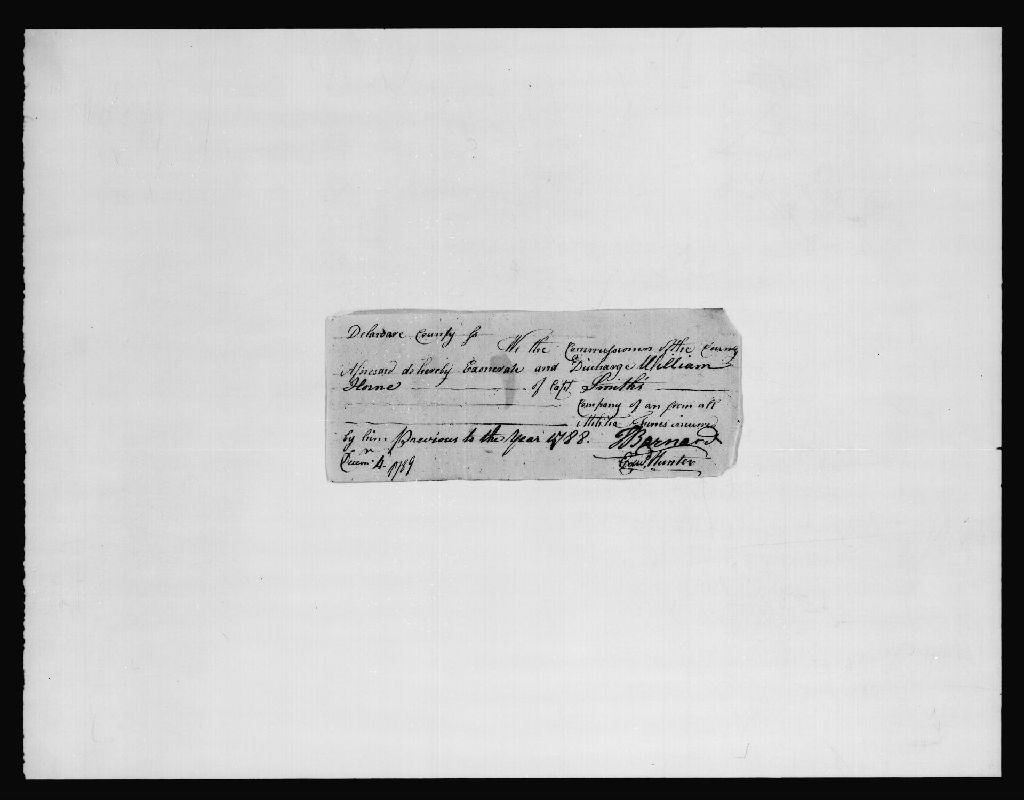 Delaware County ss
We the Commissioners of the County
Aforesaid do hereby Exonerate and Discharge William
Horne of Capt. Smith's
Company of an from all
Militia Fines incurred
by him previous to the Year 1788.
Decemr. 4. 1789
Barnard
Edwd. Hunter